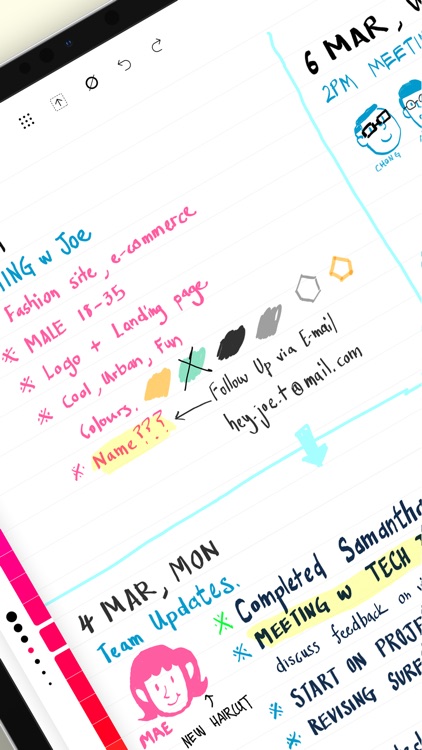 ING w Joe
Fashion site, e-commerce
※ MALE 18-35
※ Logo + Landing page
※ Cool, Urban, Fun
Colours.
※ Name???
Follow Up via E-mail
hey.joe.t@mail.com
6 MAR,
2PM MEETIN
CHONG
4 MAR, MON
Team Updates.
MAE
NEW HAIRCUT
※ Completed Samantha
※ MEETING w TECH
discuss feedback on
※ START ON PROJE
※ REVISING SURF